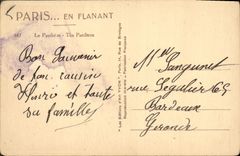 PARIS... EN FLANANT
Le Panthéon - The Pantheon
Bon Souvenir
de ton cousin
Henri et toute
sa famille
Mme Sanguinet
rue Ségalier 65
Bordeaux
Gironde